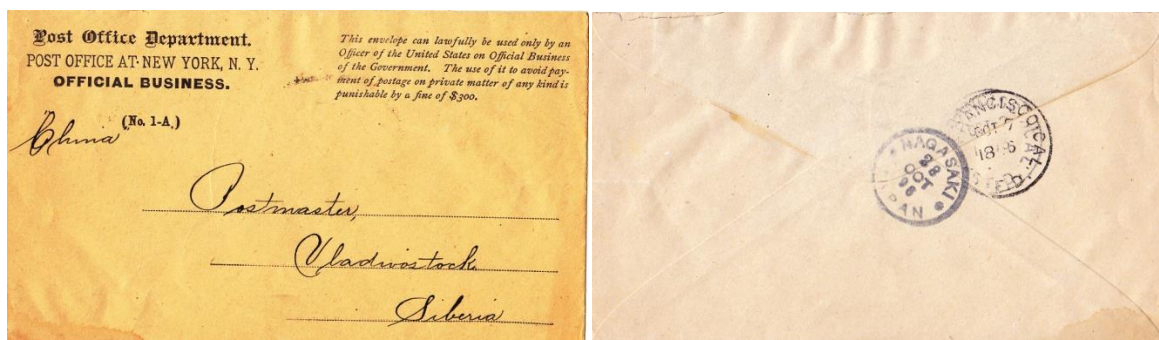 Post Office Department.
POST OFFICE AT NEW YORK, N. Y.
OFFICIAL BUSINESS.
(No. 1-A.)
This envelope can lawfully be used only by an
Officer of the United States on Official Business
of the Government. The use of it to avoid pay-
ment of postage on private matter of any kind is
punishable by a fine of $300.
China
Postmaster,
Vladivostock
Siberia
NAGASAKI
28
OCT
96
OCT 7